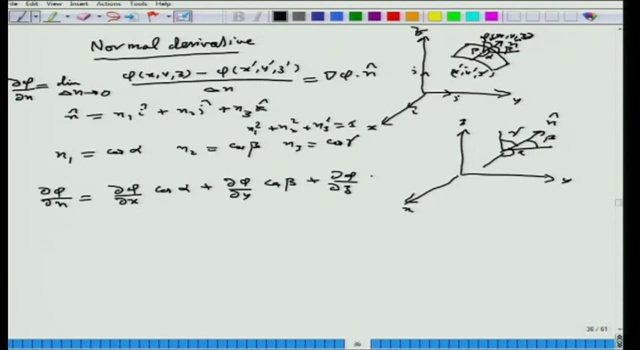 Edit View Insert Actions Tools Help
Normal derivative
∂φ/∂n = lim Δn→0 (φ(x,y,z) − φ(x',y',z'))/Δn = ∇φ·n̂
n̂ = n₁ î + n₂ ĵ + n₃ k̂
n₁² + n₂² + n₃² = 1
n₁ = cosα n₂ = cosβ n₃ = cosγ
∂φ/∂n = ∂φ/∂x cosα + ∂φ/∂y cosβ + ∂φ/∂z
z
P(x,y,z)
(x',y',z')
x
y
z
n̂
γ
β
α
y
x
26 / 61
36